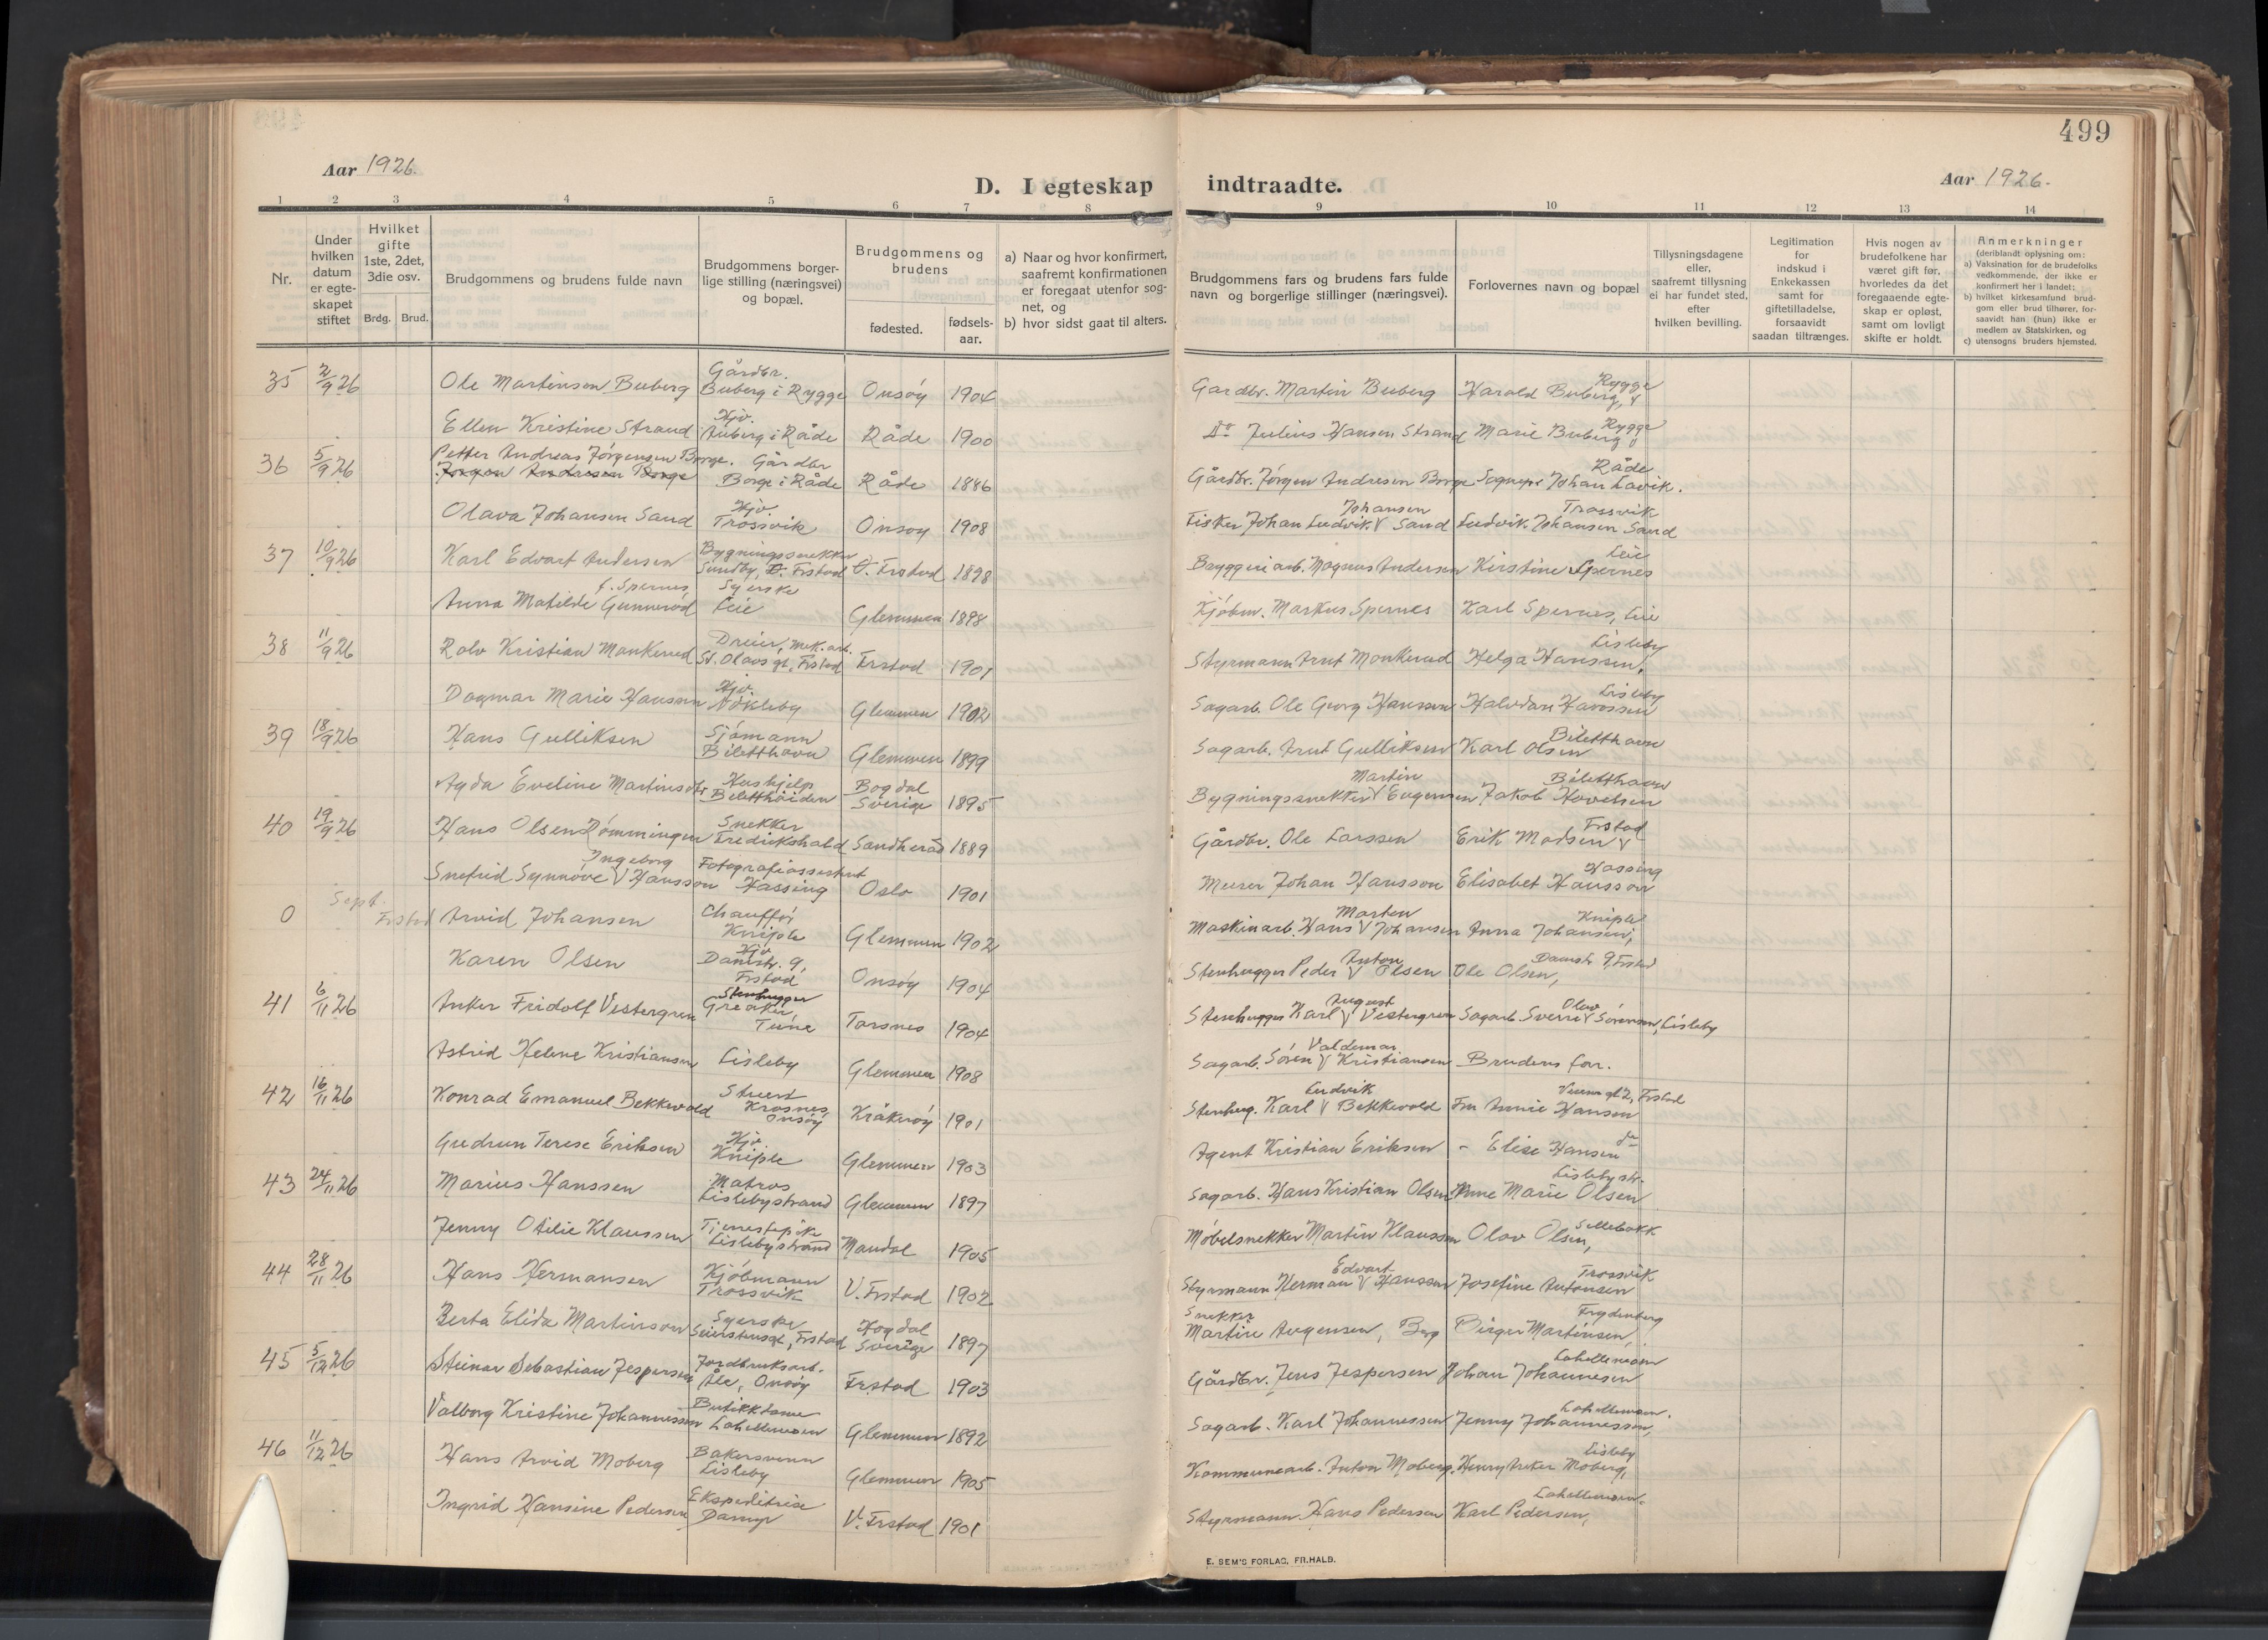 499
Aar 1926.
D. I egteskap indtraadte.
Aar 1926.
1 2 3 4 5 6 7 8 9 10 11 12 13 14
Nr.
Under hvilken datum er egteskapet stiftet
Hvilket gifte 1ste, 2det, 3die osv.
Brdg. Brud.
Brudgommens og brudens fulde navn
Brudgommens borgerlige stilling (næringsvei) og bopæl.
Brudgommens og brudens
fødested.
fødselsaar.
a) Naar og hvor konfirmert, saafremt konfirmationen er foregaat utenfor sognet, og
b) hvor sidst gaat til alters.
Brudgommens fars og brudens fars fulde navn og borgerlige stillinger (næringsvei).
Forlovernes navn og bopæl
Tillysningsdagene eller, saafremt tillysning ei har fundet sted, efter hvilken bevilling.
Legitimation for indskud i Enkekassen samt for giftetilladelse, forsaavidt saadan tiltrænges.
Hvis nogen av brudefolkene har været gift før, hvorledes da det foregaaende egteskap er opløst, samt om lovligt skifte er holdt.
Anmerkninger (deriblandt oplysning om:
a) Vaksination for de brudefolks vedkommende, der ikke er konfirmert her i landet;
b) hvilket kirkesamfund brudgom eller brud tilhører, forsaavidt han (hun) ikke er medlem av Statskirken, og
c) utensogns bruders hjemsted.
35 2/9 26 Ole Martinsen Buberg Gårdbr. Buberg i Rygge Onsøy 1904 Gardbr. Martin Buberg Harald Buberg, Rygge
Ellen Kristine Strand Hjv. Åuberg i Råde Råde 1900 Do Julius Hansen Strand Marie Buberg Rygge
36 5/9 26 Petter Andreas Jørgensen Borge. Jørgen Andresen Borge Gårdbr Borge i Råde Råde 1886 Gårdbr. Jørgen Andresen Borge Sognepr Johan Lavik. Råde
Olava Johansen Sand Hjv. Trossvik Onsøy 1908 Fisker Johan Ludvik V Johansen Sand Ludvik Johansen Sand Trossvik
37 10/9 26 Karl Edvart Andersen Bygningssnekker Sundby, Ø. Frstad Ø. Frstad 1898 Bryggeriarb. Magnus Andersen Kirstine Spernes Leie
Anna Matilde Gunnerød f. Spernes Syerske Leie Glemmen 1898 Kjøbm. Markus Spernes Karl Spernes, Leie
38 11/9 26 Rolv Kristian Monkerud Dreier, mek. arb. St. Olavs gt. Frstad Frstad 1901 Styrmann Arnt Monkerud Helga Hanssen, Lisleby
Dagmar Marie Hanssen Hjv. Nøkleby Glemmen 1902 Sagarb. Ole Georg Hanssen Halvdan Hanssen Lisleby
39 18/9 26 Hans Gulliksen Sjømann Biletthavn Glemmen 1899 Sagarb. Arnt Gulliksen Karl Olsen Biletthavn
Agda Eveline Martinsdtr Hushjelp Biletthøiden Bogdal Sverige 1895 Bygningssnekker V Martin Evgensen Jakob Hovelsen Biletthavn
40 19/9 26 Hans Olsen Rømmingen Snekker Fredrikshald Sandherad 1889 Gårdbr. Ole Larssen Erik Madsen V Frstad
Snefrid Synnøve V Ingeborg Hansson Fotografiassistent Hassing Oslo 1901 Murer Johan Hansson Elisabet Hansson Hassing
0 Sept. Frstad Arvid Johansen Chauffør Kniple Glemmen 1902 Maskinarb. Hans V Marten Johansen Anna Johansen, Kniple
Karen Olsen Hjv Damstr. 9, Frstad Onsøy 1904 Stenhugger Peder V Anton Olsen Ole Olsen, Damstr 9, Frstad
41 6/11 26 Anker Fridolf Vestergren Stenhugger Greaker, Tune Torsnes 1904 Stenhugger Karl V August Vestergren Sagarb. Sverre V Olav Sørensen, Lisleby
Astrid Helene Kristiansen Lisleby Glemmen 1908 Sagarb. Søren V Valdemar Kristiansen Brudens far.
42 16/11 26 Konrad Emanuel Bekkevold Stuert Krosnes Onsøy Kråkerøy 1901 Stenhug. Karl V Ludvik Bekkevold Fru Annie Hansen Veumgt 2, Frstad
Gudrun Terese Eriksen Hjv. Kniple Glemmen 1903 Agent Kristian Eriksen - Elise Hansen do
43 24/11 26 Marius Hanssen Matros Lislebystrand Glemmen 1897 Sagarb. Hans Kristian Olsen Anne Marie Olsen Lislebystr.
Jenny Otilie Klaussen Tjenestepike Lislebystrand Mandal 1905 Møbelsnekker Martin Klaussen Olav Olsen, Sellebakk
44 28/11 26 Hans Hermansen Kjøbmann Trossvik V. Frstad 1902 Styrmann Herman V Edvart Hanssen Josefine Antonsen Trossvik
Berta Elida Martinson Syerske Seierstensgt, Frstad Hogdal Sverige 1897 Snekker Martin Augensen, Birger Martinsen, Frydenberg
45 5/12 26 Steinar Sebastian Jespersen Jordbruksarb. Åle, Onsøy Frstad 1903 Gårdbr. Jens Jespersen Johan Johannesen Lahellemoen
Valborg Kristine Johannessen Butikkdame Lahellemoen Glemmen 1892 Sagarb. Karl Johannessen Jenny Johannessen, Lahellemoen.
46 11/12 26 Hans Arvid Moberg Bakersvenn Lisleby Glemmen 1905 Kommunearb. Anton Moberg. Henry Anker Moberg, Lisleby
Ingrid Hansine Pedersen Ekspeditrise Damyr V. Frstad 1901 Styrmann Hans Pedersen Karl Pedersen, Lahellemoen.
E. SEM'S FORLAG, FR.HALD.